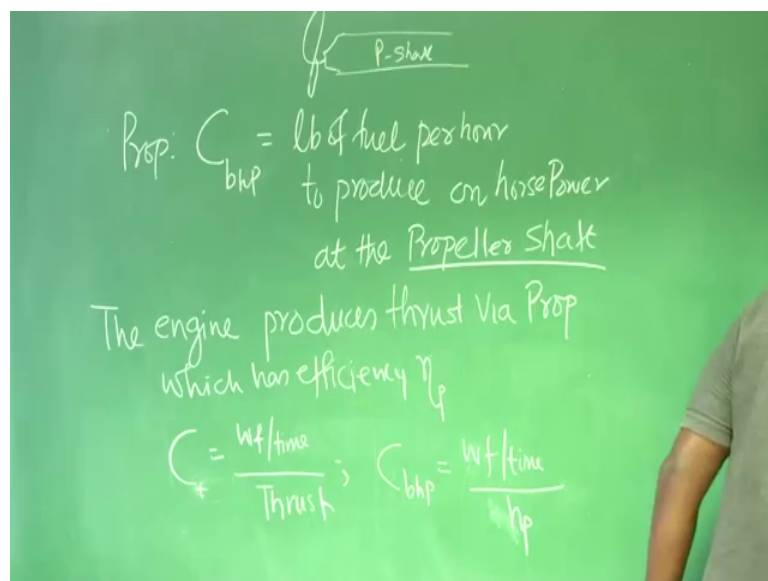 P-Shaft
Prop: C_bhp = lb of fuel per hour
to produce on horse Power
at the Propeller Shaft
The engine produces thrust Via Prop
which has efficiency η_p
C_t = Wf/time / Thrust ; C_bhp = Wf/time / hp